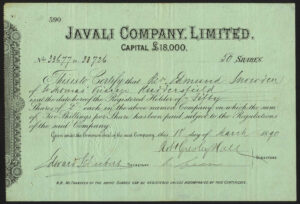 590
JAVALI COMPANY, LIMITED.
CAPITAL £18,000.
No 28677 to 28726 50 SHARES.
This is to Certify that Mr. Edmund Snowden
of St Thomas Huddersfield
and the duly Registered Holder of Fifty
Shares of each in the above Company on which the sum
of Two Shillings per Share has been paid subject to the Regulations
of the said Company.
Given under the Common Seal of the said Company, this 18 day of March 1890
DIRECTORS.
SECRETARY.
N.B. NO TRANSFER OF THE ABOVE SHARES CAN BE REGISTERED UNLESS ACCOMPANIED BY THIS CERTIFICATE.